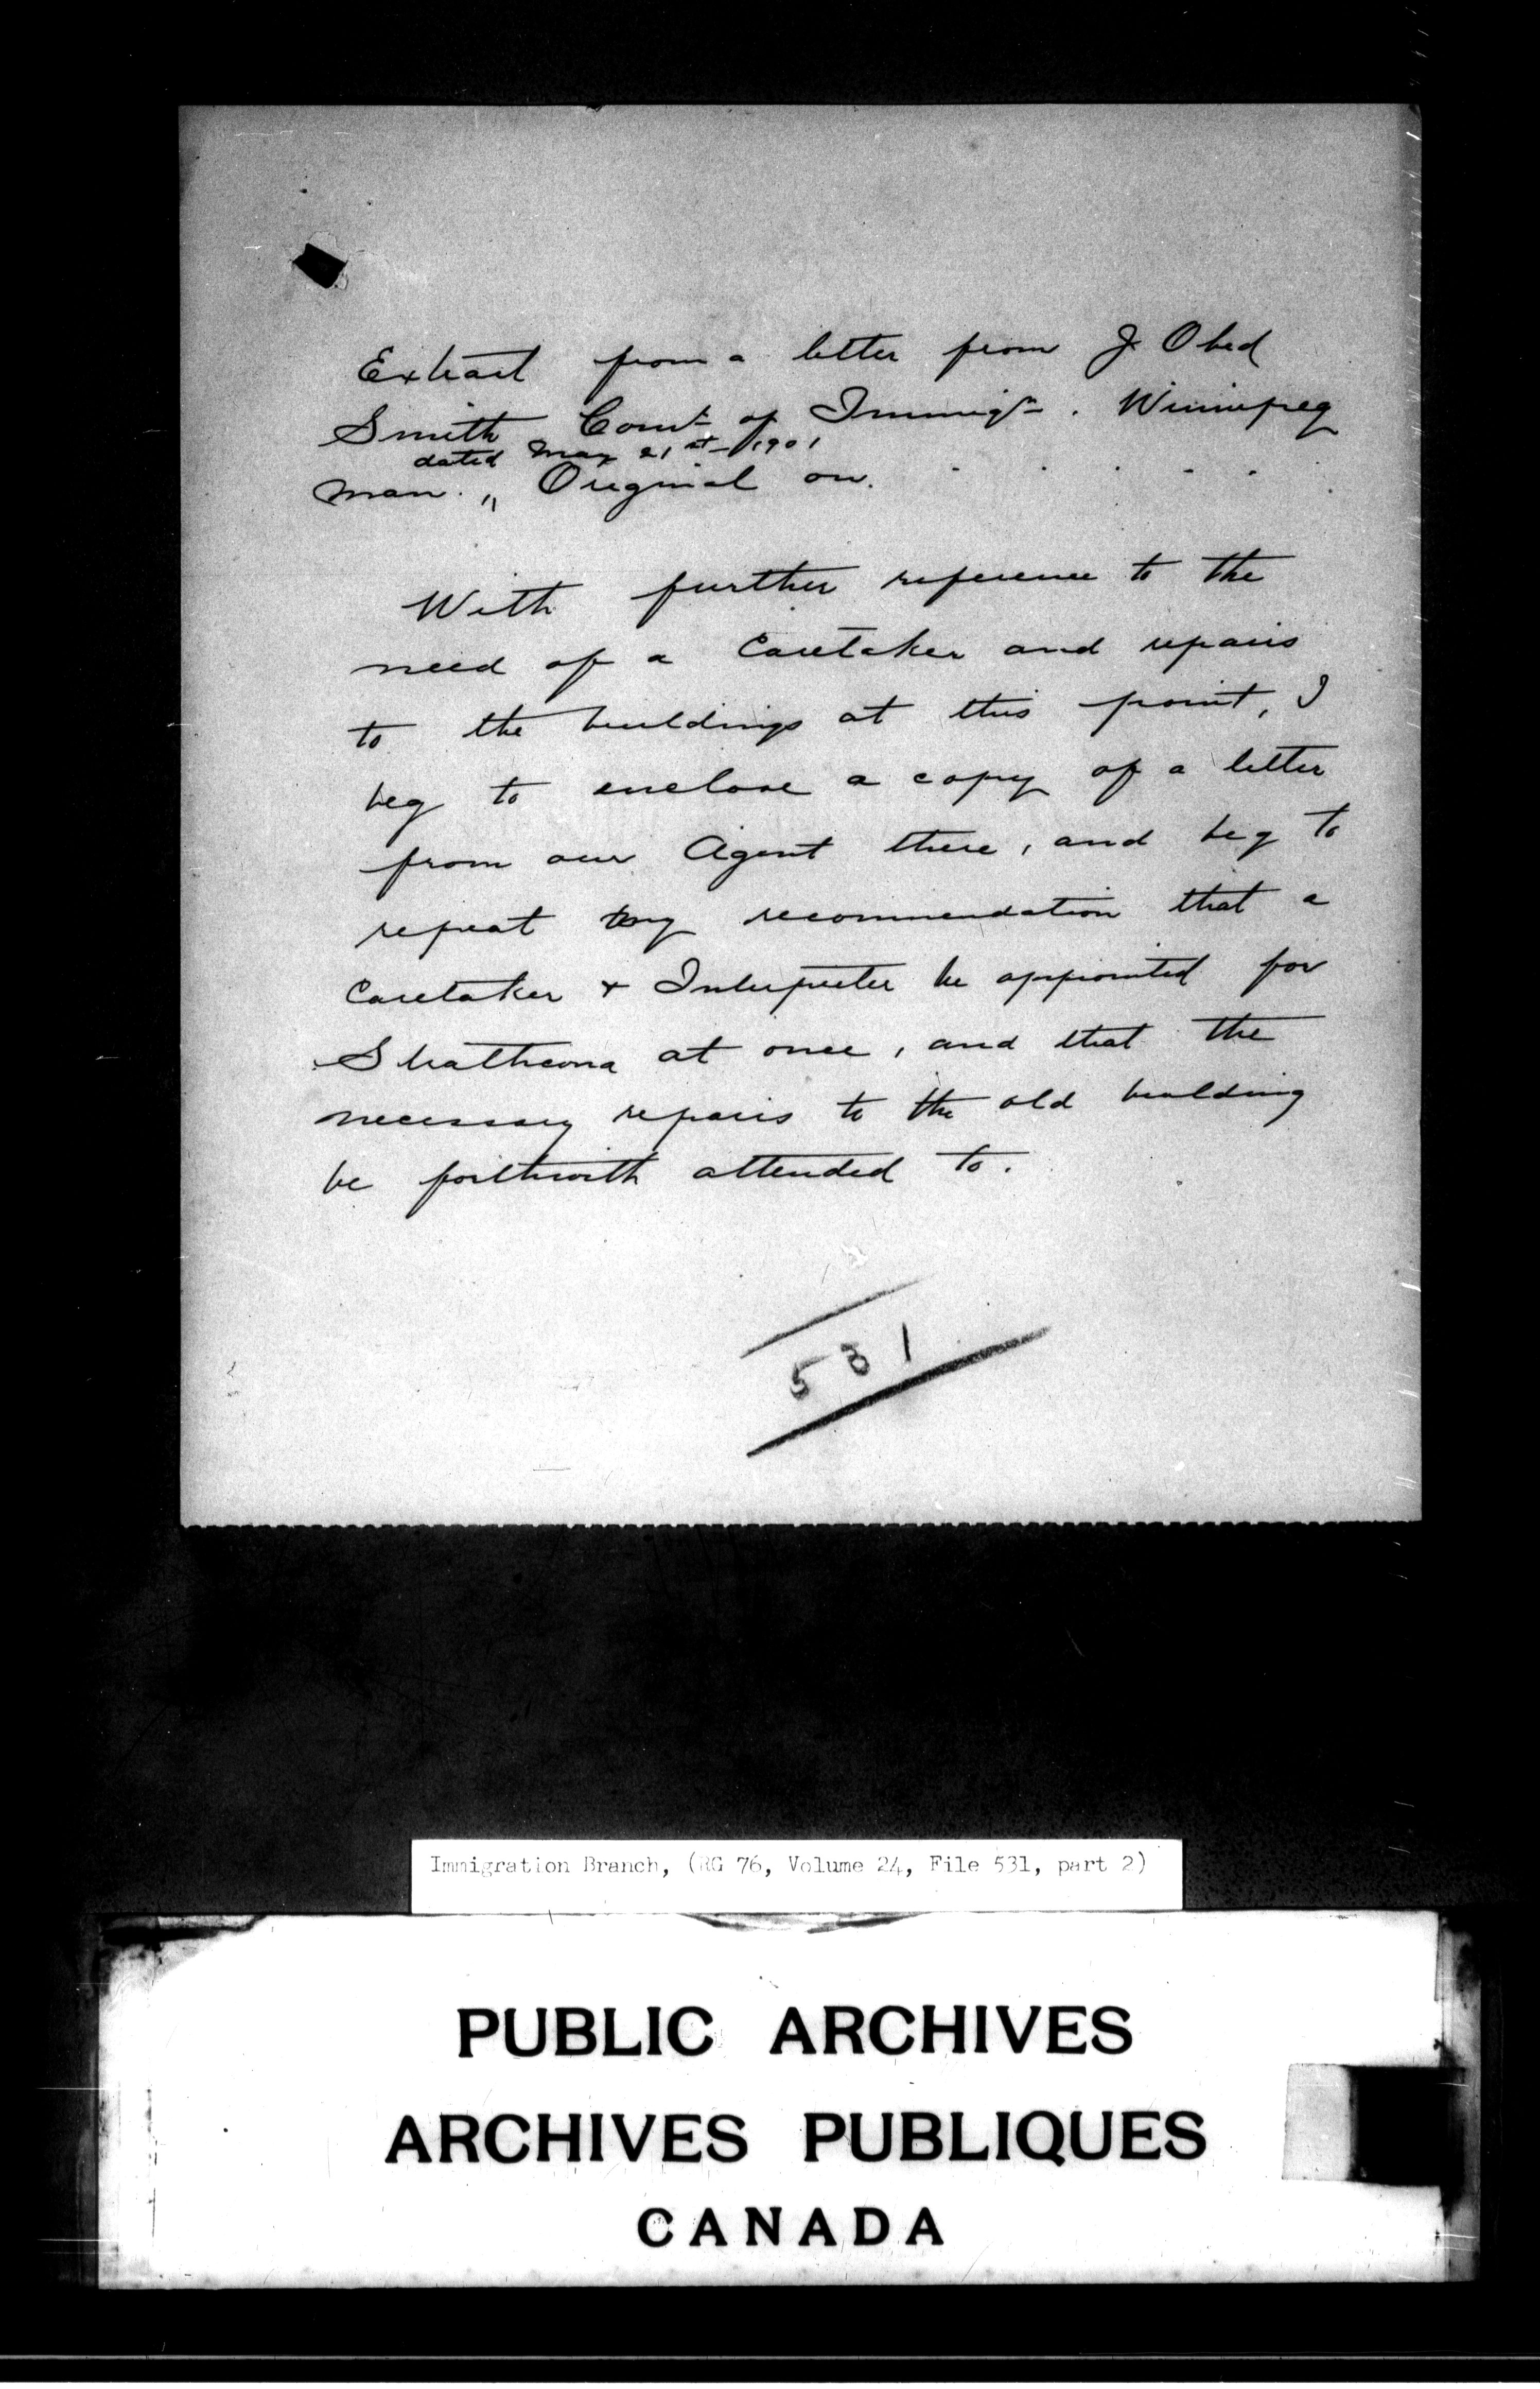 Extract from a letter from J Obed
Smith Comr of Immigtn. Winnipeg
dated May 21st 1901
Man. „ Original on. . . . . .
With further reference to the
need of a Caretaker and repairs
to the buildings at this point, I
beg to enclose a copy of a letter
from our Agent there, and beg to
repeat my recommendation that a
Caretaker & Interpreter be appointed for
Strathcona at once, and that the
necessary repairs to the old building
be forthwith attended to.
531
Immigration Branch, (RG 76, Volume 24, File 531, part 2)
PUBLIC ARCHIVES
ARCHIVES PUBLIQUES
CANADA